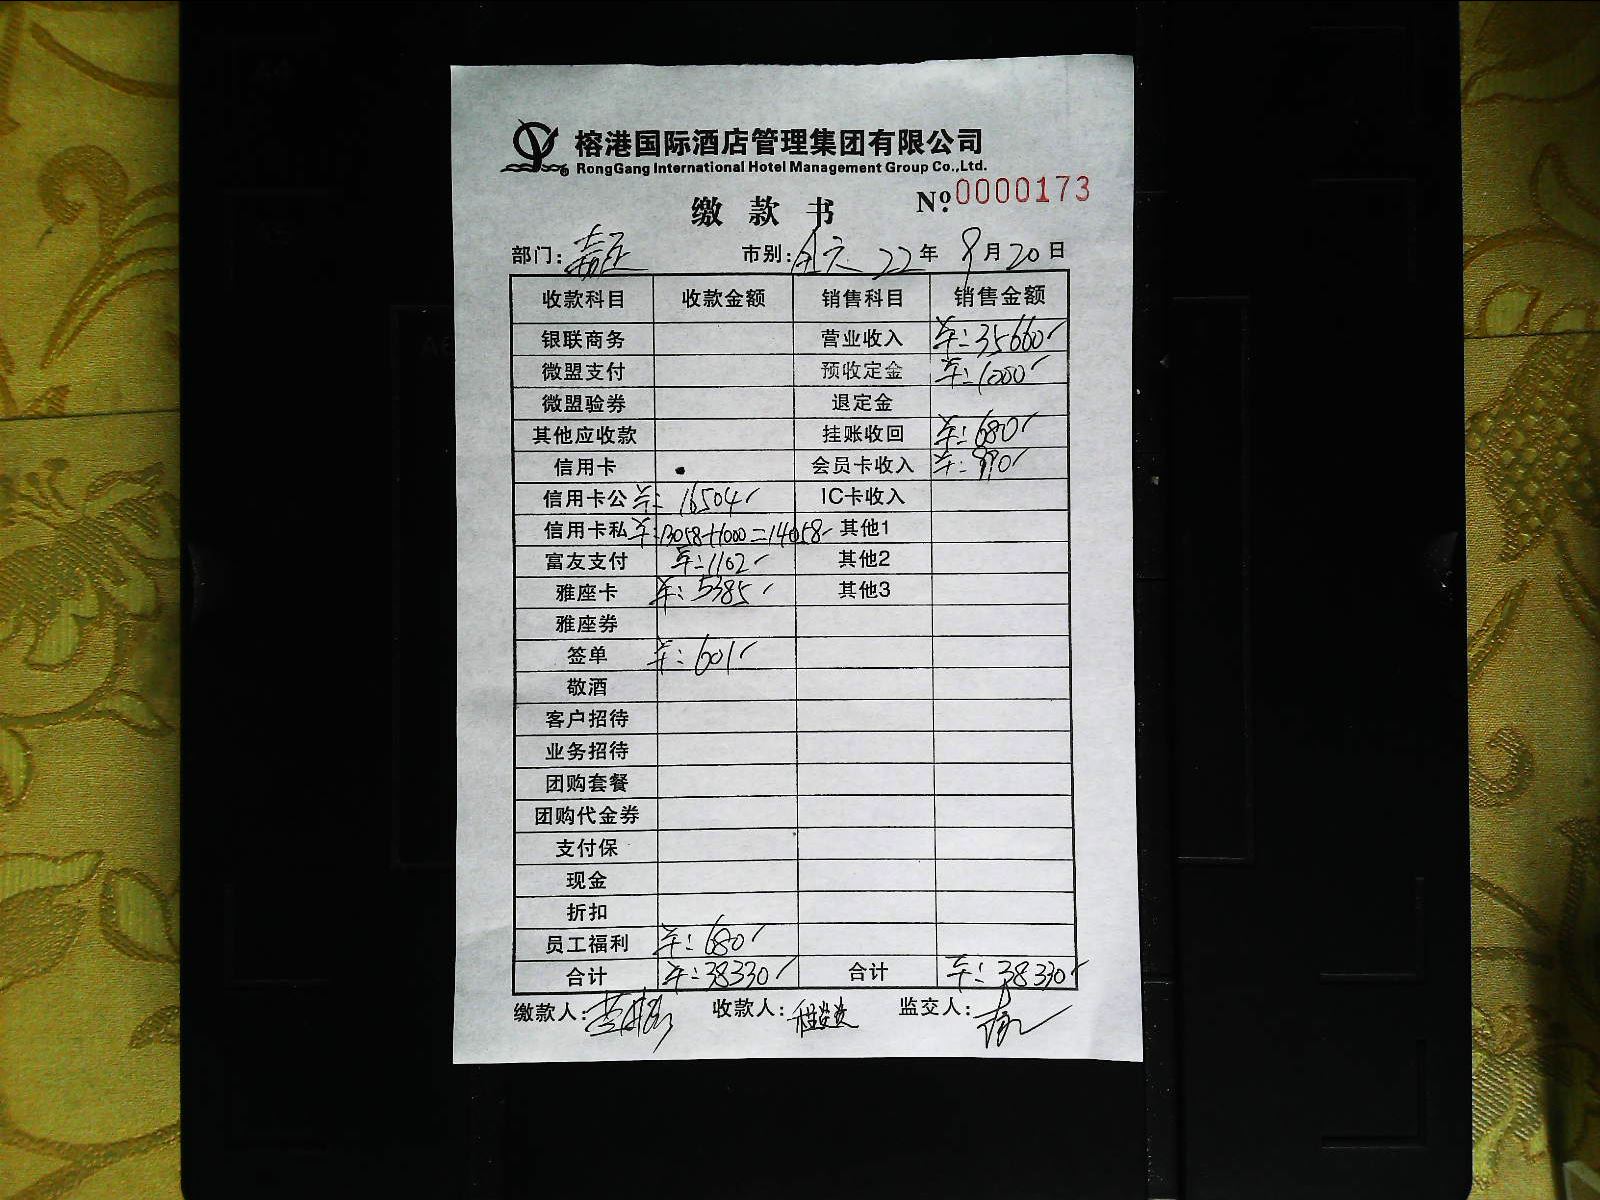 榕港国际酒店管理集团有限公司
RongGang International Hotel Management Group Co.,Ltd.
缴款书 №0000173
部门: 市别:全天 22年9月20日
收款科目 收款金额 销售科目 销售金额
银联商务 营业收入 羊:35660
微盟支付 预收定金 羊:1000
微盟验券 退定金
其他应收款 挂账收回 羊:680
信用卡 会员卡收入 羊:990
信用卡公 羊:16504 IC卡收入
信用卡私 羊:13058+1000=14058 其他1
富友支付 羊:1102 其他2
雅座卡 羊:5385 其他3
雅座券
签单 羊:601
敬酒
客户招待
业务招待
团购套餐
团购代金券
支付保
现金
折扣
员工福利 羊:680
合计 羊:38330 合计 羊:38330
缴款人: 收款人: 监交人: